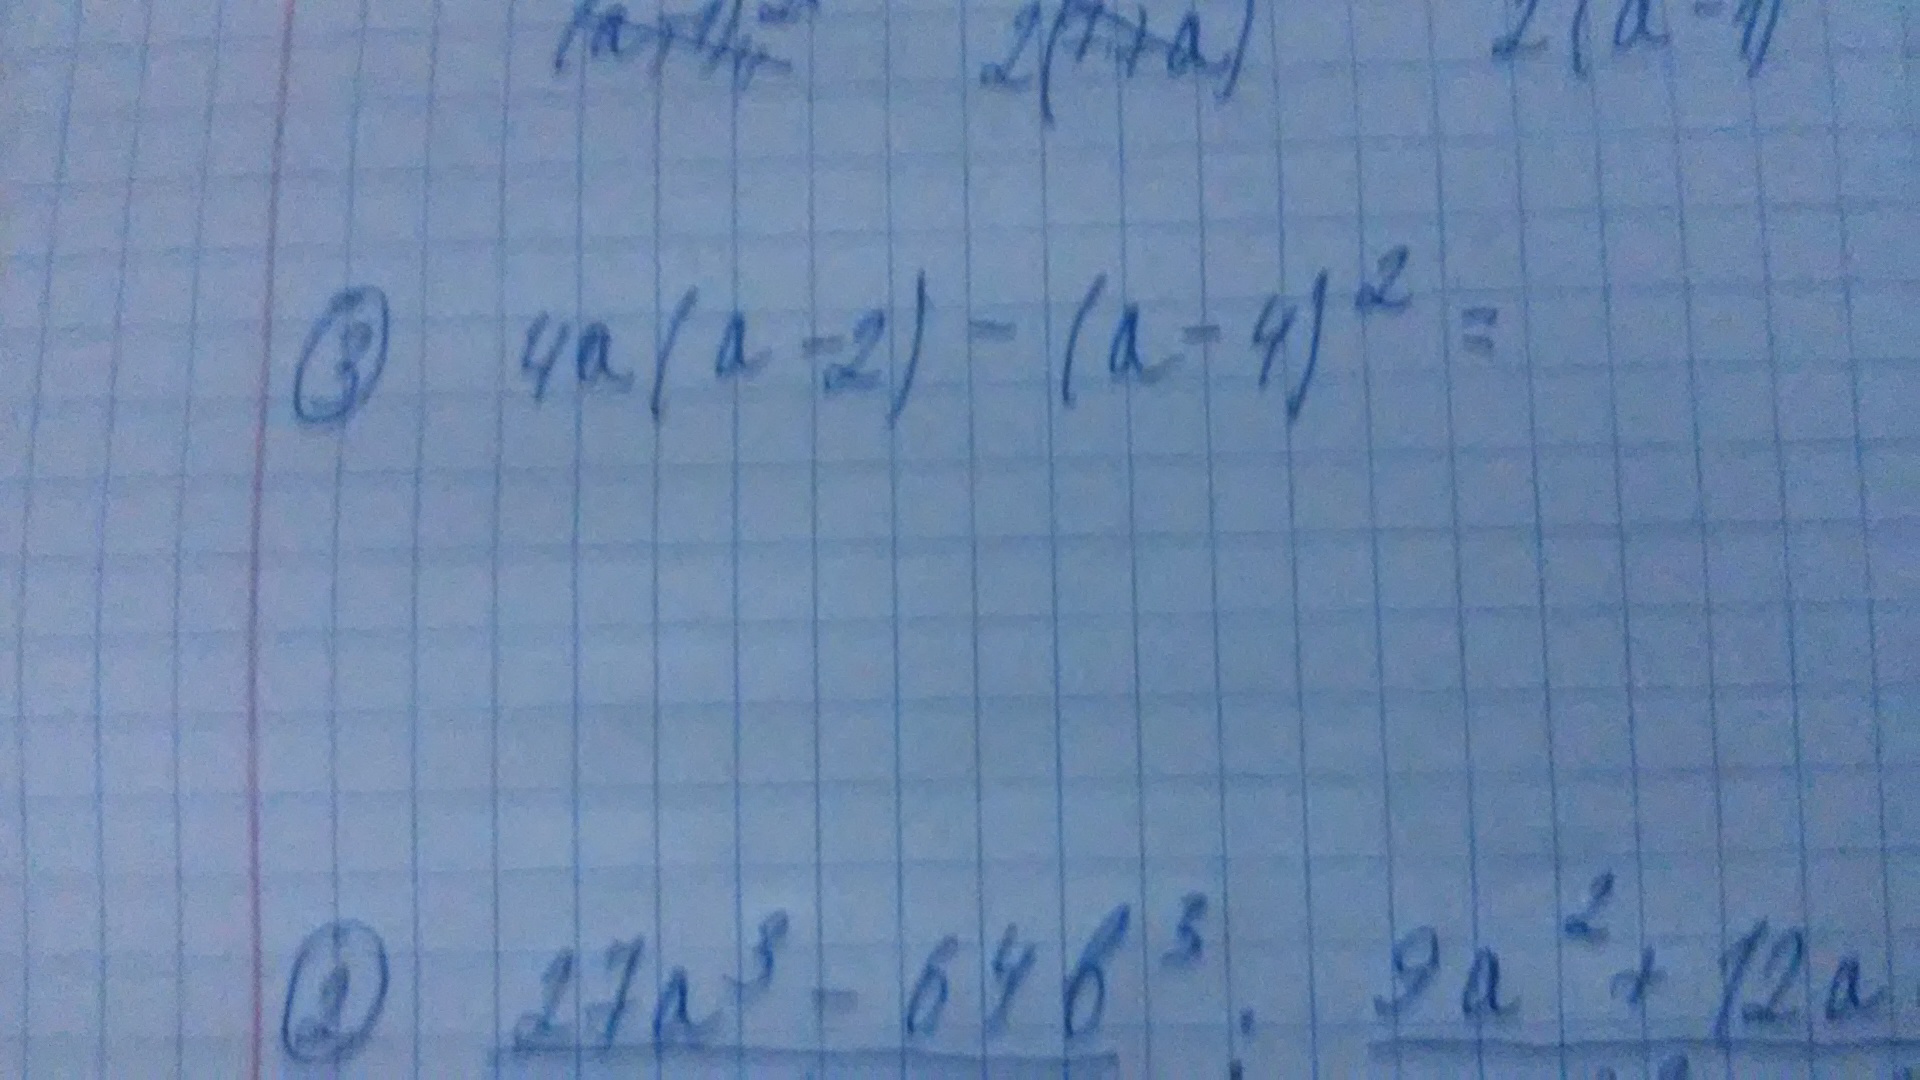 2(7+a) 2(a-4)
③ 4a(a-2)-(a-4)² =
② 27a³-64b³ : 9a²+12a